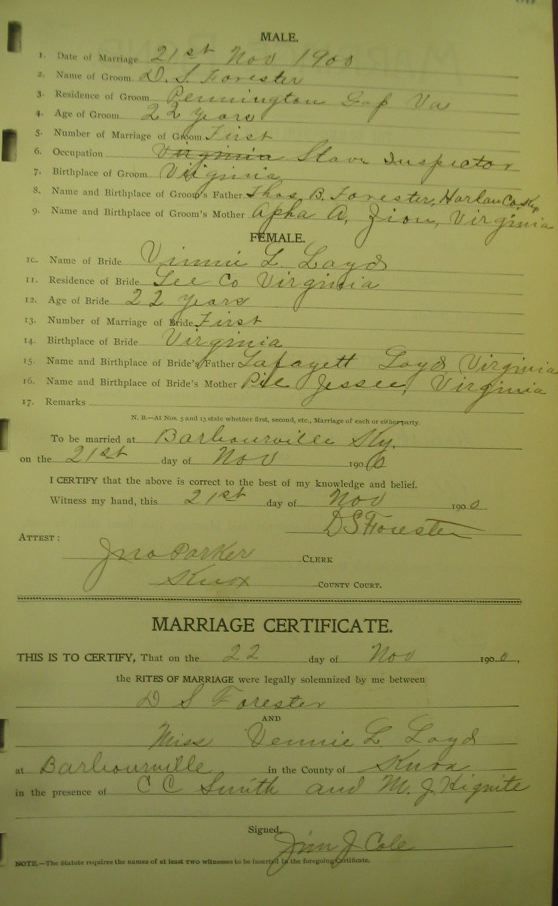 MALE.
1. Date of Marriage 21st Nov 1900
2. Name of Groom D. S. Forester
3. Residence of Groom Pennington Gap Va
4. Age of Groom 22 years
5. Number of Marriage of Groom First
6. Occupation Virginia Stave Inspector
7. Birthplace of Groom Virginia
8. Name and Birthplace of Groom's Father Thos B. Forester, Harlan Co. Ky
9. Name and Birthplace of Groom's Mother Apha A, Zion, Virginia
FEMALE.
10. Name of Bride Vinnie L. Loyd
11. Residence of Bride Lee Co Virginia
12. Age of Bride 22 years
13. Number of Marriage of Bride First
14. Birthplace of Bride Virginia
15. Name and Birthplace of Bride's Father Lafayett Loyd Virginia
16. Name and Birthplace of Bride's Mother Jessee, Virginia
17. Remarks
N. B.—At Nos. 5 and 13 state whether first, second, etc., Marriage of each or either party.
To be married at Barbourville Ky.
on the 21st day of Nov 1900
I CERTIFY that the above is correct to the best of my knowledge and belief.
Witness my hand, this 21st day of Nov 1900
D S Forester
ATTEST:
Jno Parker CLERK
Knox COUNTY COURT.
MARRIAGE CERTIFICATE.
THIS IS TO CERTIFY, That on the 22 day of Nov 1900,
the RITES OF MARRIAGE were legally solemnized by me between
D S Forester
AND
Miss Vennie L Loyd
at Barbourville in the County of Knox
in the presence of C C Smith and M. J Hignite
Signed, Jim J Cole
NOTE.—The Statute requires the names of at least two witnesses to be inserted in the foregoing Certificate.